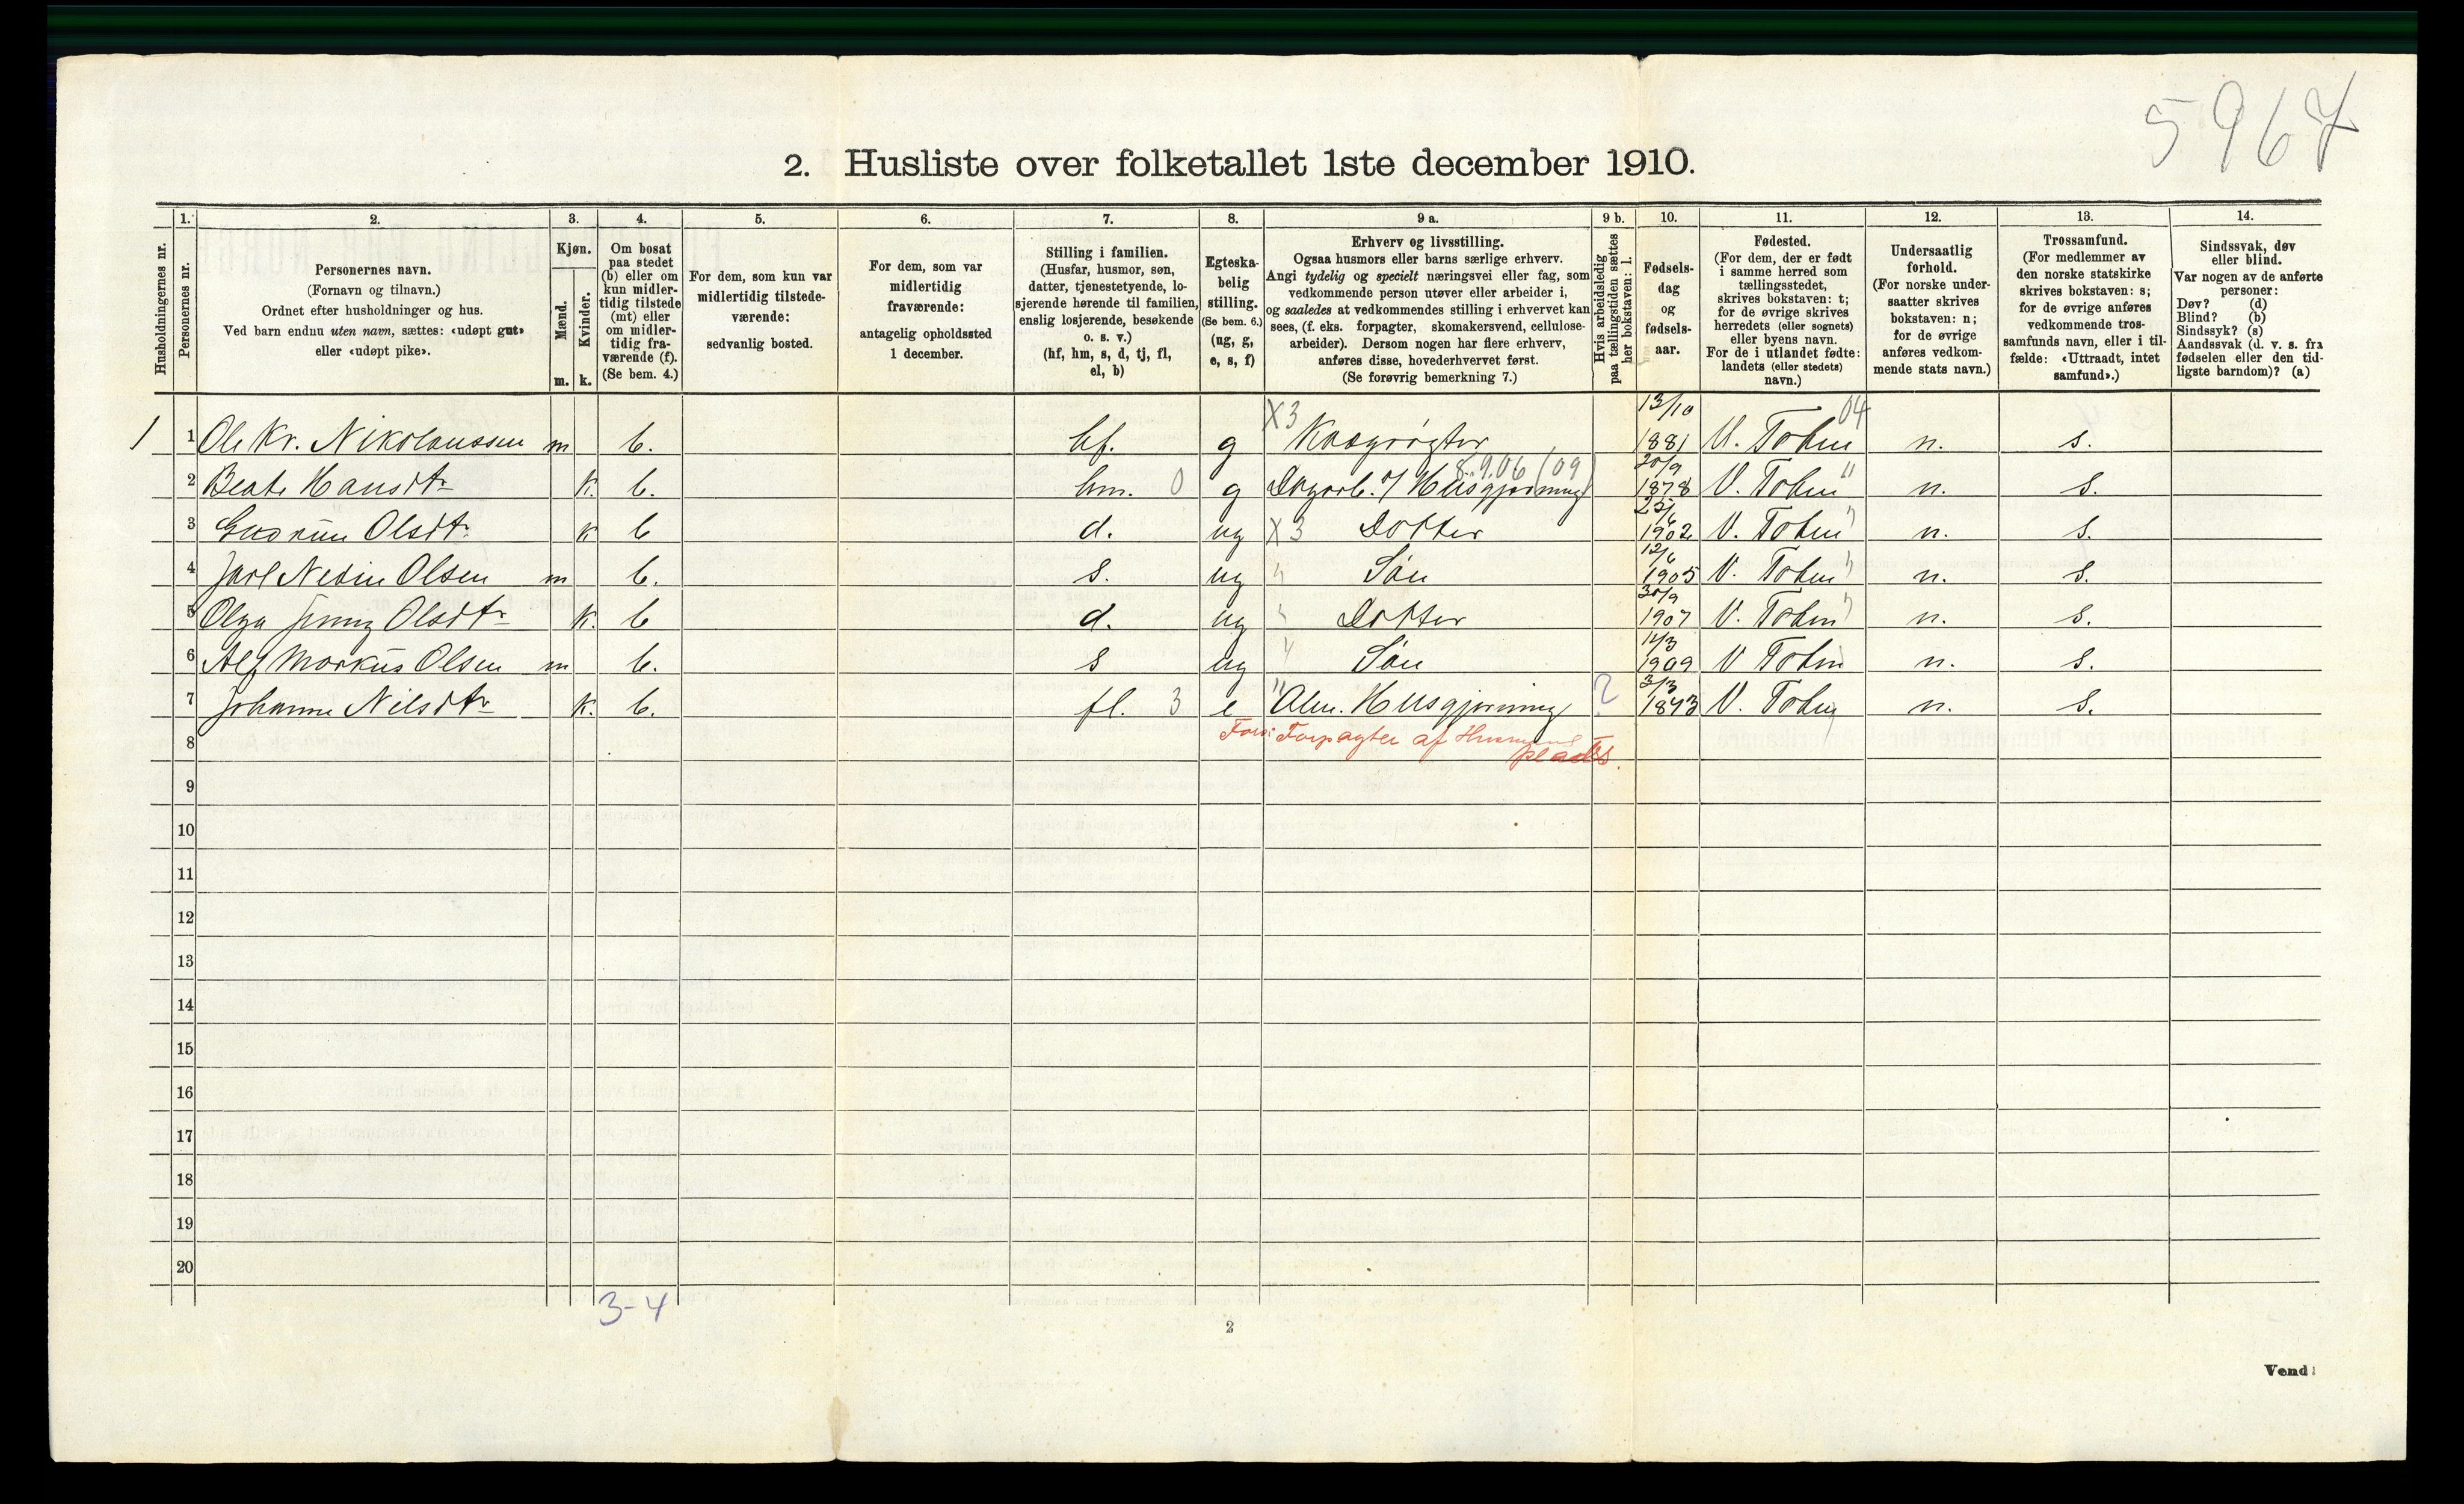 5967
2. Husliste over folketallet 1ste december 1910.
Husholdningernes nr.
1.
Personernes nr.
2.
Personernes navn.
(Fornavn og tilnavn.)
Ordnet efter husholdninger og hus.
Ved barn endnu uten navn, sættes: «udøpt gut»
eller «udøpt pike».
3.
Kjøn.
Mænd.
m.
Kvinder.
k.
4.
Om bosat
paa stedet
(b) eller om
kun midler-
tidig tilstede
(mt) eller
om midler-
tidig fra-
værende (f).
(Se bem. 4.)
5.
For dem, som kun var
midlertidig tilstede-
værende:
sedvanlig bosted.
6.
For dem, som var
midlertidig
fraværende:
antagelig opholdssted
1 december.
7.
Stilling i familien.
(Husfar, husmor, søn,
datter, tjenestetyende, lo-
sjerende hørende til familien,
enslig losjerende, besøkende
o. s. v.)
(hf, hm, s, d, tj, fl,
el, b)
8.
Egteska-
belig
stilling.
(Se bem. 6.)
(ug, g,
e, s, f)
9 a.
Erhverv og livsstilling.
Ogsaa husmors eller barns særlige erhverv.
Angi tydelig og specielt næringsvei eller fag, som
vedkommende person utøver eller arbeider i,
og saaledes at vedkommendes stilling i erhvervet kan
sees, (f. eks. forpagter, skomakersvend, cellulose-
arbeider). Dersom nogen har flere erhverv,
anføres disse, hovederhvervet først.
(Se forøvrig bemerkning 7.)
9 b.
Hvis arbeidsledig
paa tællingstiden sættes
her bokstaven: l.
10.
Fødsels-
dag
og
fødsels-
aar.
11.
Fødested.
(For dem, der er født
i samme herred som
tællingsstedet,
skrives bokstaven: t;
for de øvrige skrives
herredets (eller sognets)
eller byens navn.
For de i utlandet fødte:
landets (eller stedets)
navn.)
12.
Undersaatlig
forhold.
(For norske under-
saatter skrives
bokstaven: n;
for de øvrige
anføres vedkom-
mende stats navn.)
13.
Trossamfund.
(For medlemmer av
den norske statskirke
skrives bokstaven: s;
for de øvrige anføres
vedkommende tros-
samfunds navn, eller i til-
fælde: «Uttraadt, intet
samfund».)
14.
Sindssvak, døv
eller blind.
Var nogen av de anførte
personer:
Døv? (d)
Blind? (b)
Sindssyk? (s)
Aandssvak (d. v. s. fra
fødselen eller den tid-
ligste barndom)? (a)
1 1 Ole Kr. Nikolaussen m b. hf. g X3 Kreaturrøgter 13/10 1881 V. Toten 04 n. s.
2 Beate Hansdtr k. b. hm. 0 g Dagarb. v/ Husgjerning 8.9.06 (09) 20/9 1878 V. Toten " n. s.
3 Gudrun Olsdtr. k b d. ug X3 Dotter 1902 V. Toten " n. s.
4 Jarl Nedin Olsen m b. s. ug " Søn 12/6 1905 V. Toten " n. s.
5 Olga Jenny Olsdtr k. b d. ug " Dotter 30/9 1907 V. Toten " n. s.
6 Alf Markus Olsen m b. s ug " Søn 11/3 1909 V Toten n. s.
7 Johanne Nilsdtr k. b. fl. 3 e " Alm. Husgjerning ? 3/3 1843 V. Toten n. s.
8 Fors: Forpagter af Husmands
plads.
9
10
11
12
13
14
15
16
17
18
19
20
3-4
2
Vend!